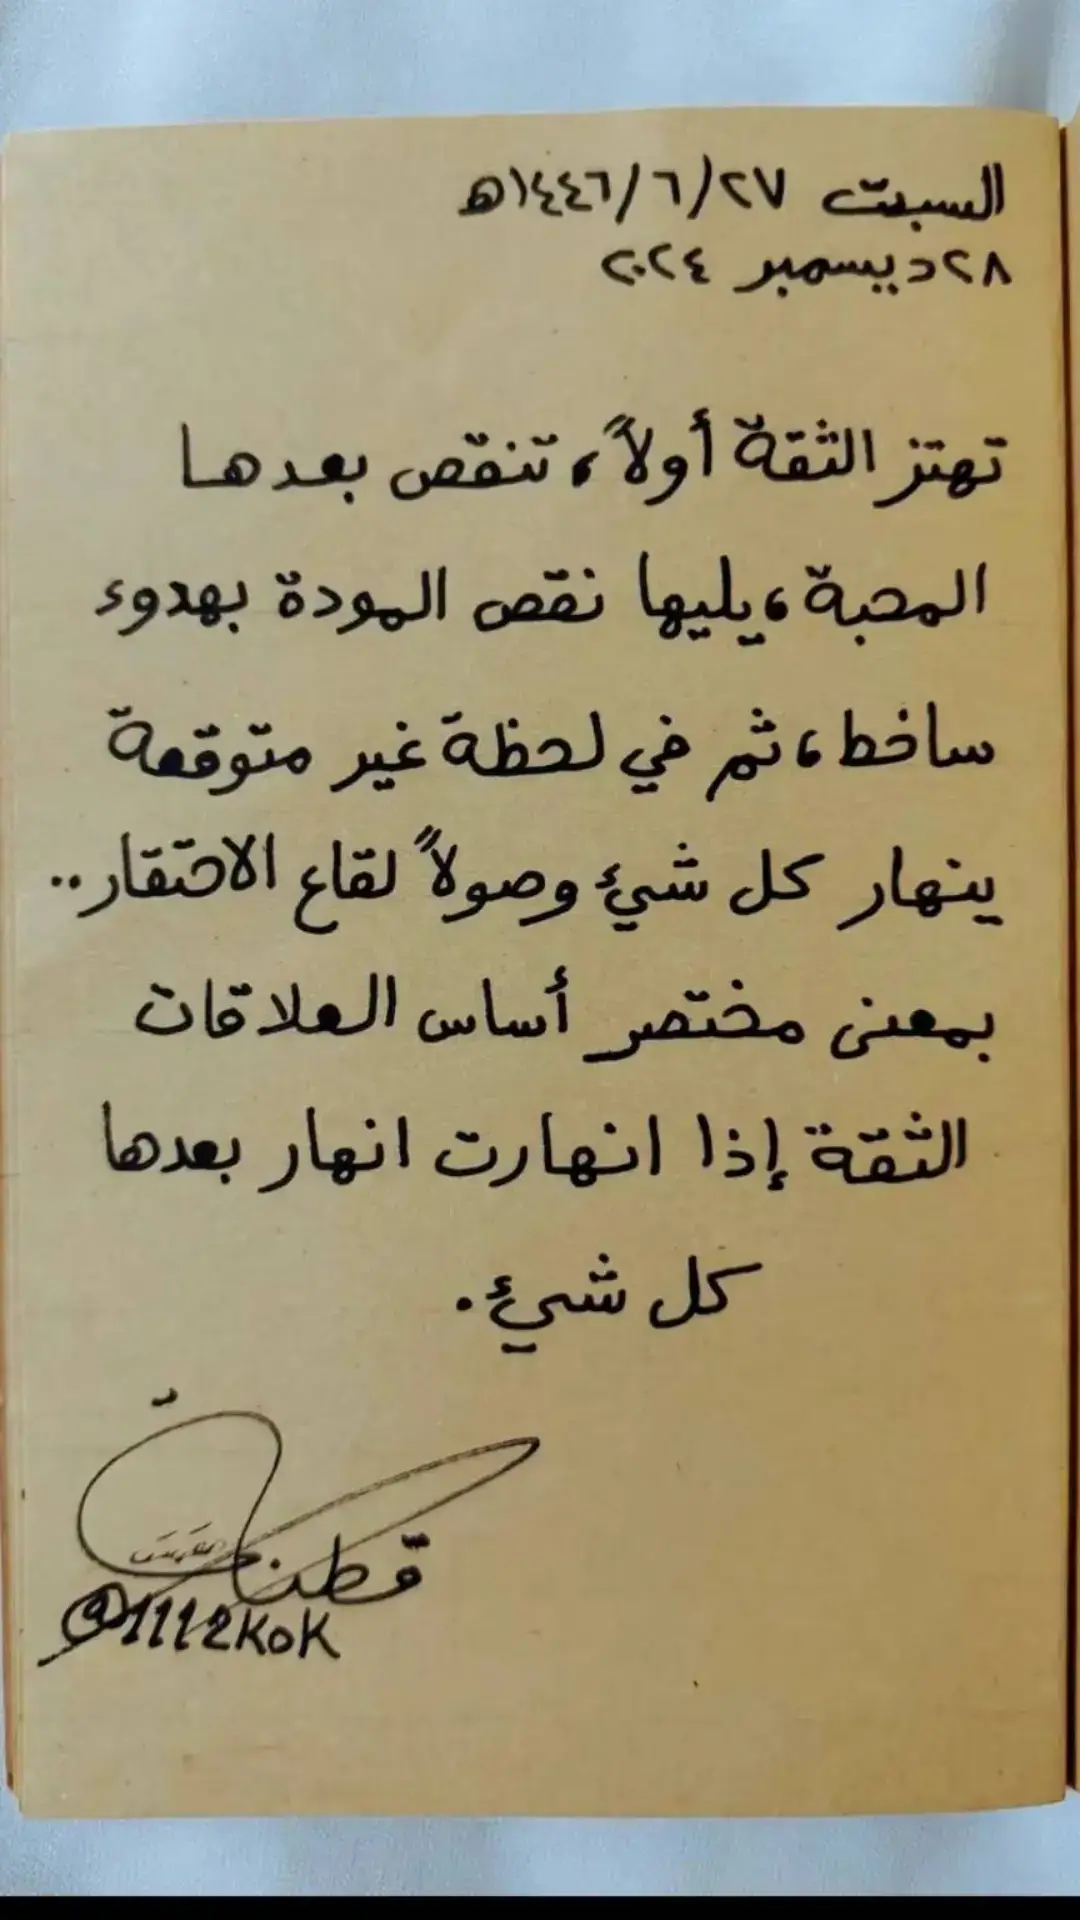 السبت ٢٧/٦/١٤٤٦هـ
٢٨ ديسمبر ٢٠٢٤
تهتز الثقة أولاً، تنقص بعدها
المحبة، يليها نقص المودة بهدوء
ساخط، ثم في لحظة غير متوقعة
ينهار كل شيء وصولاً لقاع الاحتقار..
بمعنى مختصر أساس العلاقات
الثقة إذا انهارت انهار بعدها
كل شيء.
@1112KOK